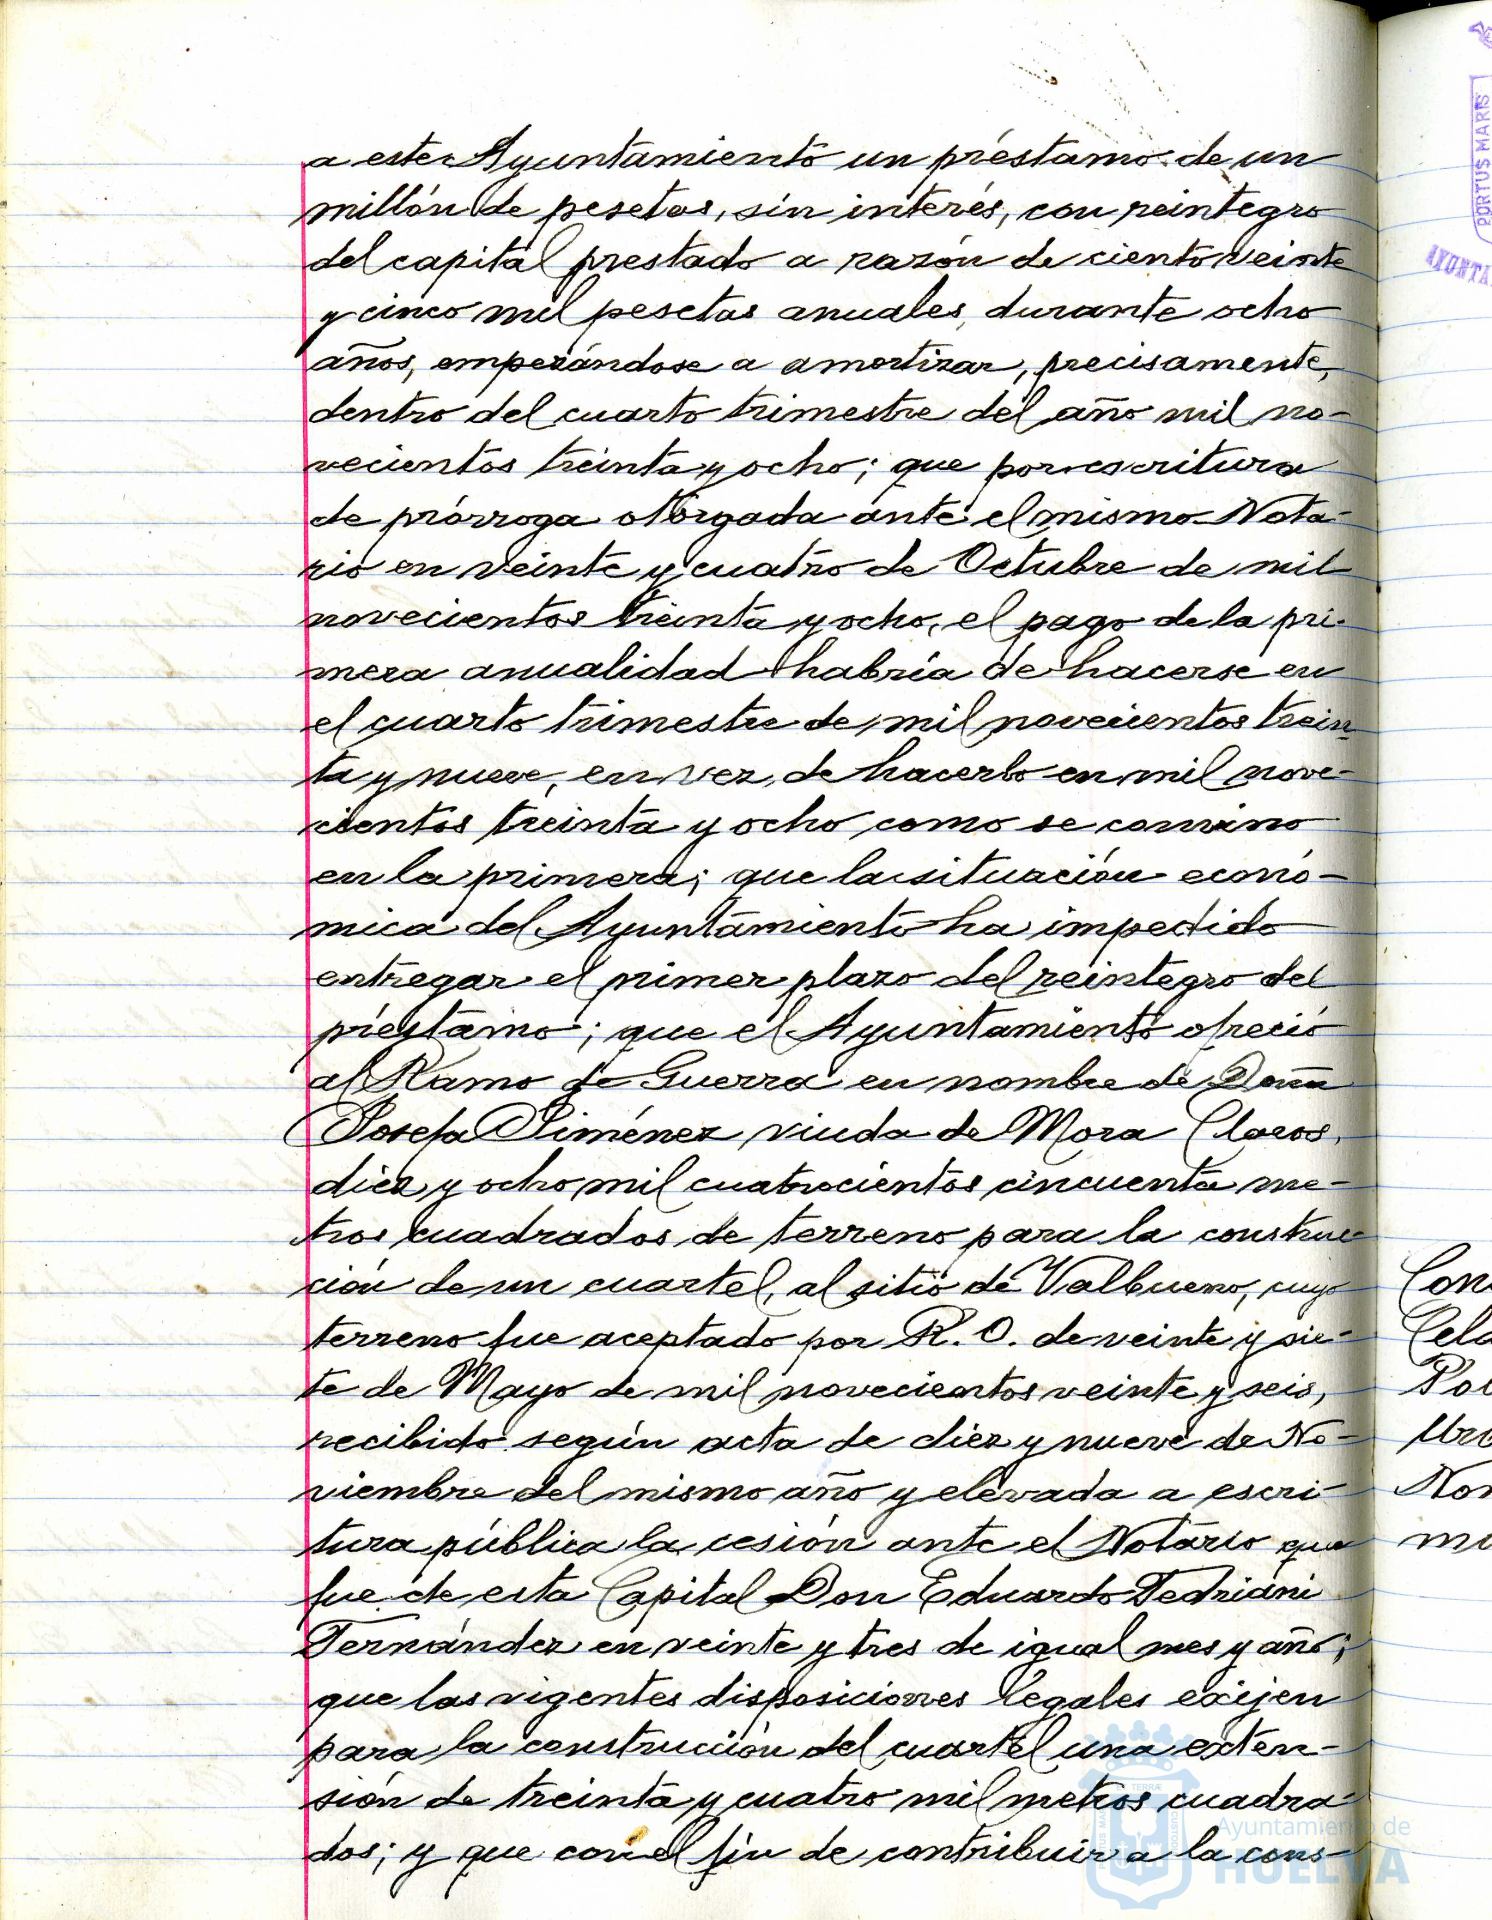 a este Ayuntamiento un préstamo de un
millón de pesetas, sin interés, con reintegro
del capital prestado a razón de ciento veinte
y cinco mil pesetas anuales, durante ocho
años, empezándose a amortizar, precisamente,
dentro del cuarto trimestre del año mil no-
vecientos treinta y ocho; que por escritura
de prórroga otorgada ante el mismo Nota-
rio en veinte y cuatro de Octubre de mil
novecientos treinta y ocho, el pago de la pri-
mera anualidad habría de hacerse en
el cuarto trimestre de mil novecientos trein-
ta y nueve, en vez de hacerlo en mil nove-
cientos treinta y ocho como se convino
en la primera; que la situación econó-
mica del Ayuntamiento ha impedido
entregar el primer plazo del reintegro del
préstamo; que el Ayuntamiento ofreció
al Ramo de Guerra en nombre de Doña
Josefa Jiménez viuda de Mora Claros,
diez y ocho mil cuatrocientos cincuenta me-
tros cuadrados de terreno para la construc-
ción de un cuartel, al sitio de Valbueno, cuyo
terreno fue aceptado por R. O. de veinte y sie-
te de Mayo de mil novecientos veinte y seis,
recibido según acta de diez y nueve de No-
viembre del mismo año y elevada a escri-
tura pública la cesión ante el Notario que
fue de esta Capital Don Eduardo Fedriani
Fernández en veinte y tres de igual mes y año;
que las vigentes disposiciones legales exijen
para la construcción del cuartel una exten-
sión de treinta y cuatro mil metros cuadra-
dos; y que con el fin de contribuir a la cons-
PORTUS MARIS
Ayuntamiento de
HUELVA